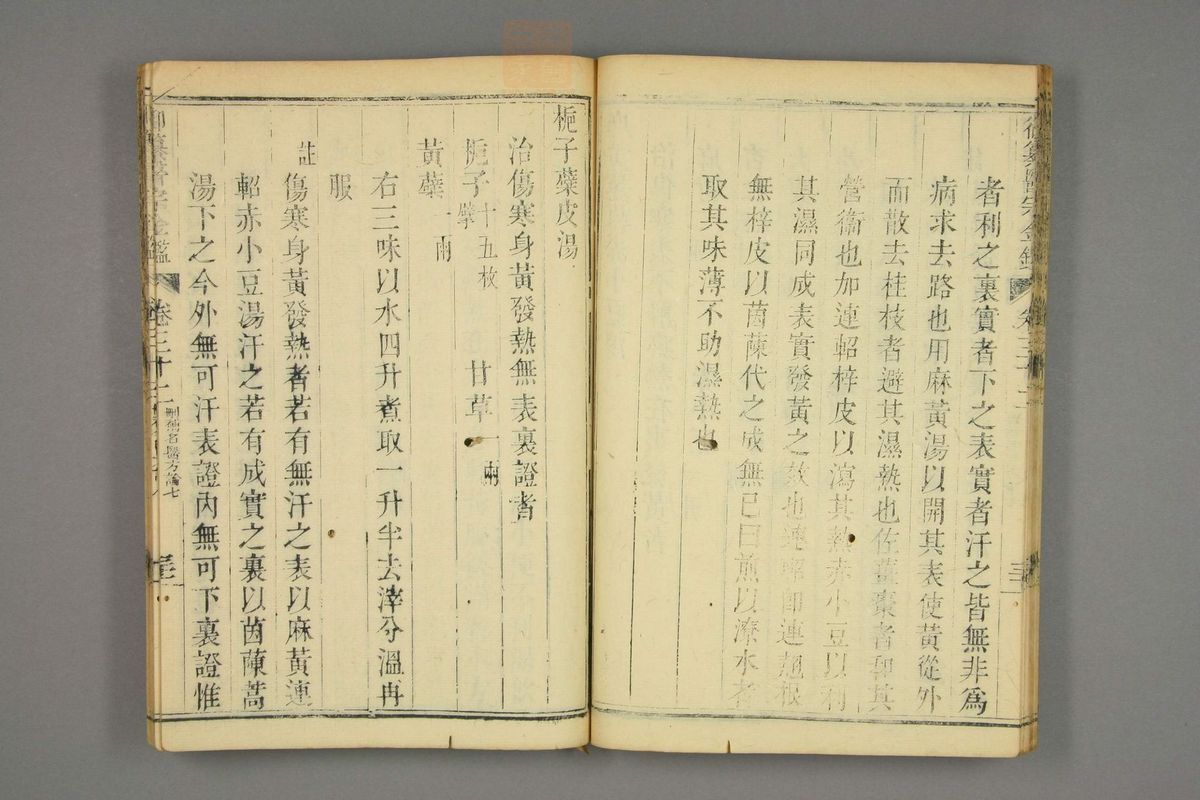 者利之裏實者下之表實者汗之皆無非爲
病求去路也用麻黃湯以開其表使黃從外
而散去桂枝者避其濕熱也佐薑棗者和其
營衞也加連軺梓皮以瀉其熱赤小豆以利
其濕同成表實發黃之效也連軺卽連翹根
無梓皮以茵蔯代之成無已曰煎以潦水者
取其味薄不助濕熱也
梔子蘗皮湯
治傷寒身黃發熱無表裏證者
梔子十五枚擘 甘草一兩
黃蘗一兩
右三味以水四升煮取一升半去滓分溫再
服
註
傷寒身黃發熱者若有無汗之表以麻黃連
軺赤小豆湯汗之若有成實之裏以茵蔯蒿
湯下之今外無可汗表證內無可下裏證惟
御纂醫宗金鑑 卷三十一 刪補名醫方論七